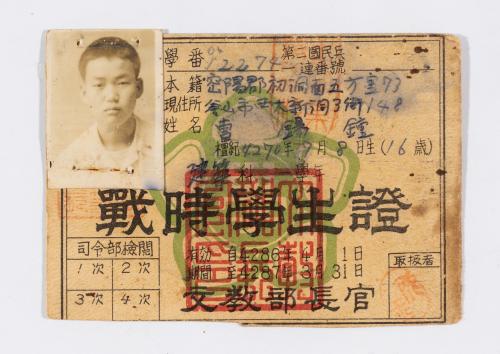 學番 12274 第二國民兵
一連番號
本籍 密陽郡初洞面五方里73
現住所 釜山市 大新洞3街148
姓名 曺 鐘
檀紀4270年 月8日生(16歲)
建築科 學年
戰時學生證
司令部檢閱
1次 2次
3次 4次
有効期間 自4286年4月1日
至4287年3月31日
取扱者
文敎部長官